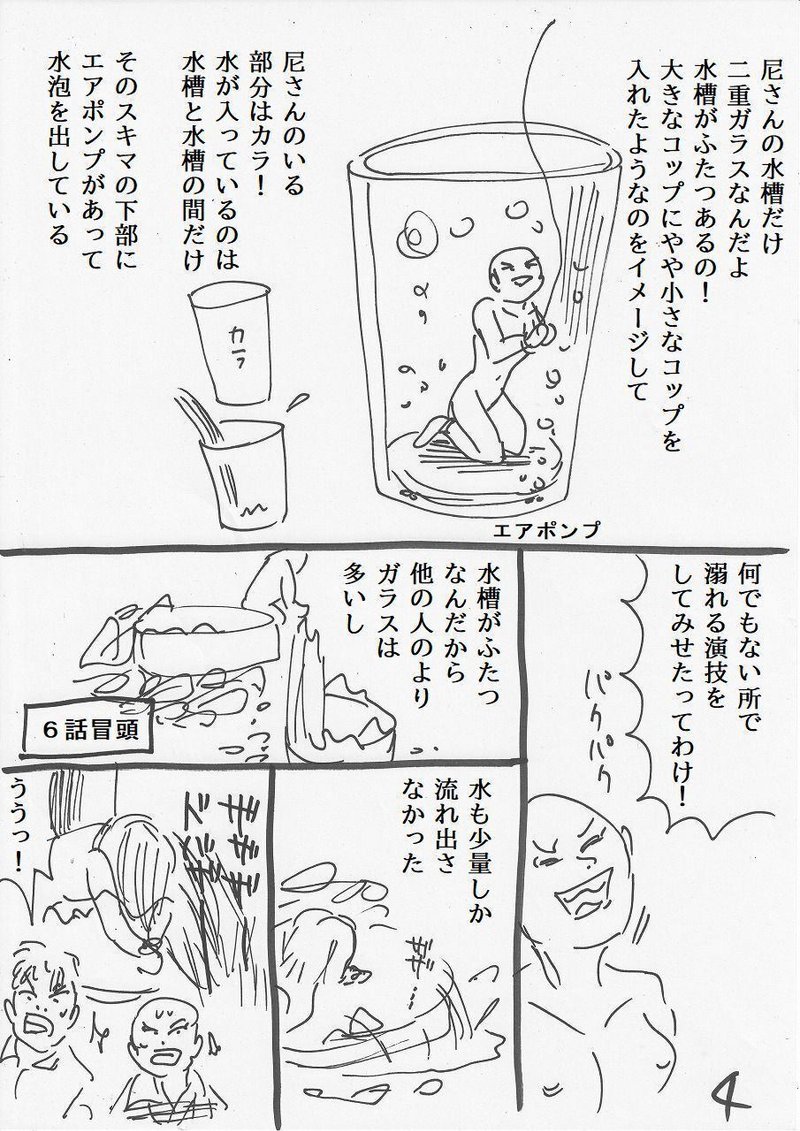 尼さんの水槽だけ
二重ガラスなんだよ
水槽がふたつあるの！
大きなコップにやや小さなコップを
入れたようなのをイメージして
尼さんのいる
部分はカラ！
水が入っているのは
水槽と水槽の間だけ
そのスキマの下部に
エアポンプがあって
水泡を出している
カラ
エアポンプ
何でもない所で
溺れる演技を
してみせたってわけ！
パクパク
水槽がふたつ
なんだから
他の人のより
ガラスは
多いし
６話冒頭
水も少量しか
流れ出さ
なかった
ううっ！
4